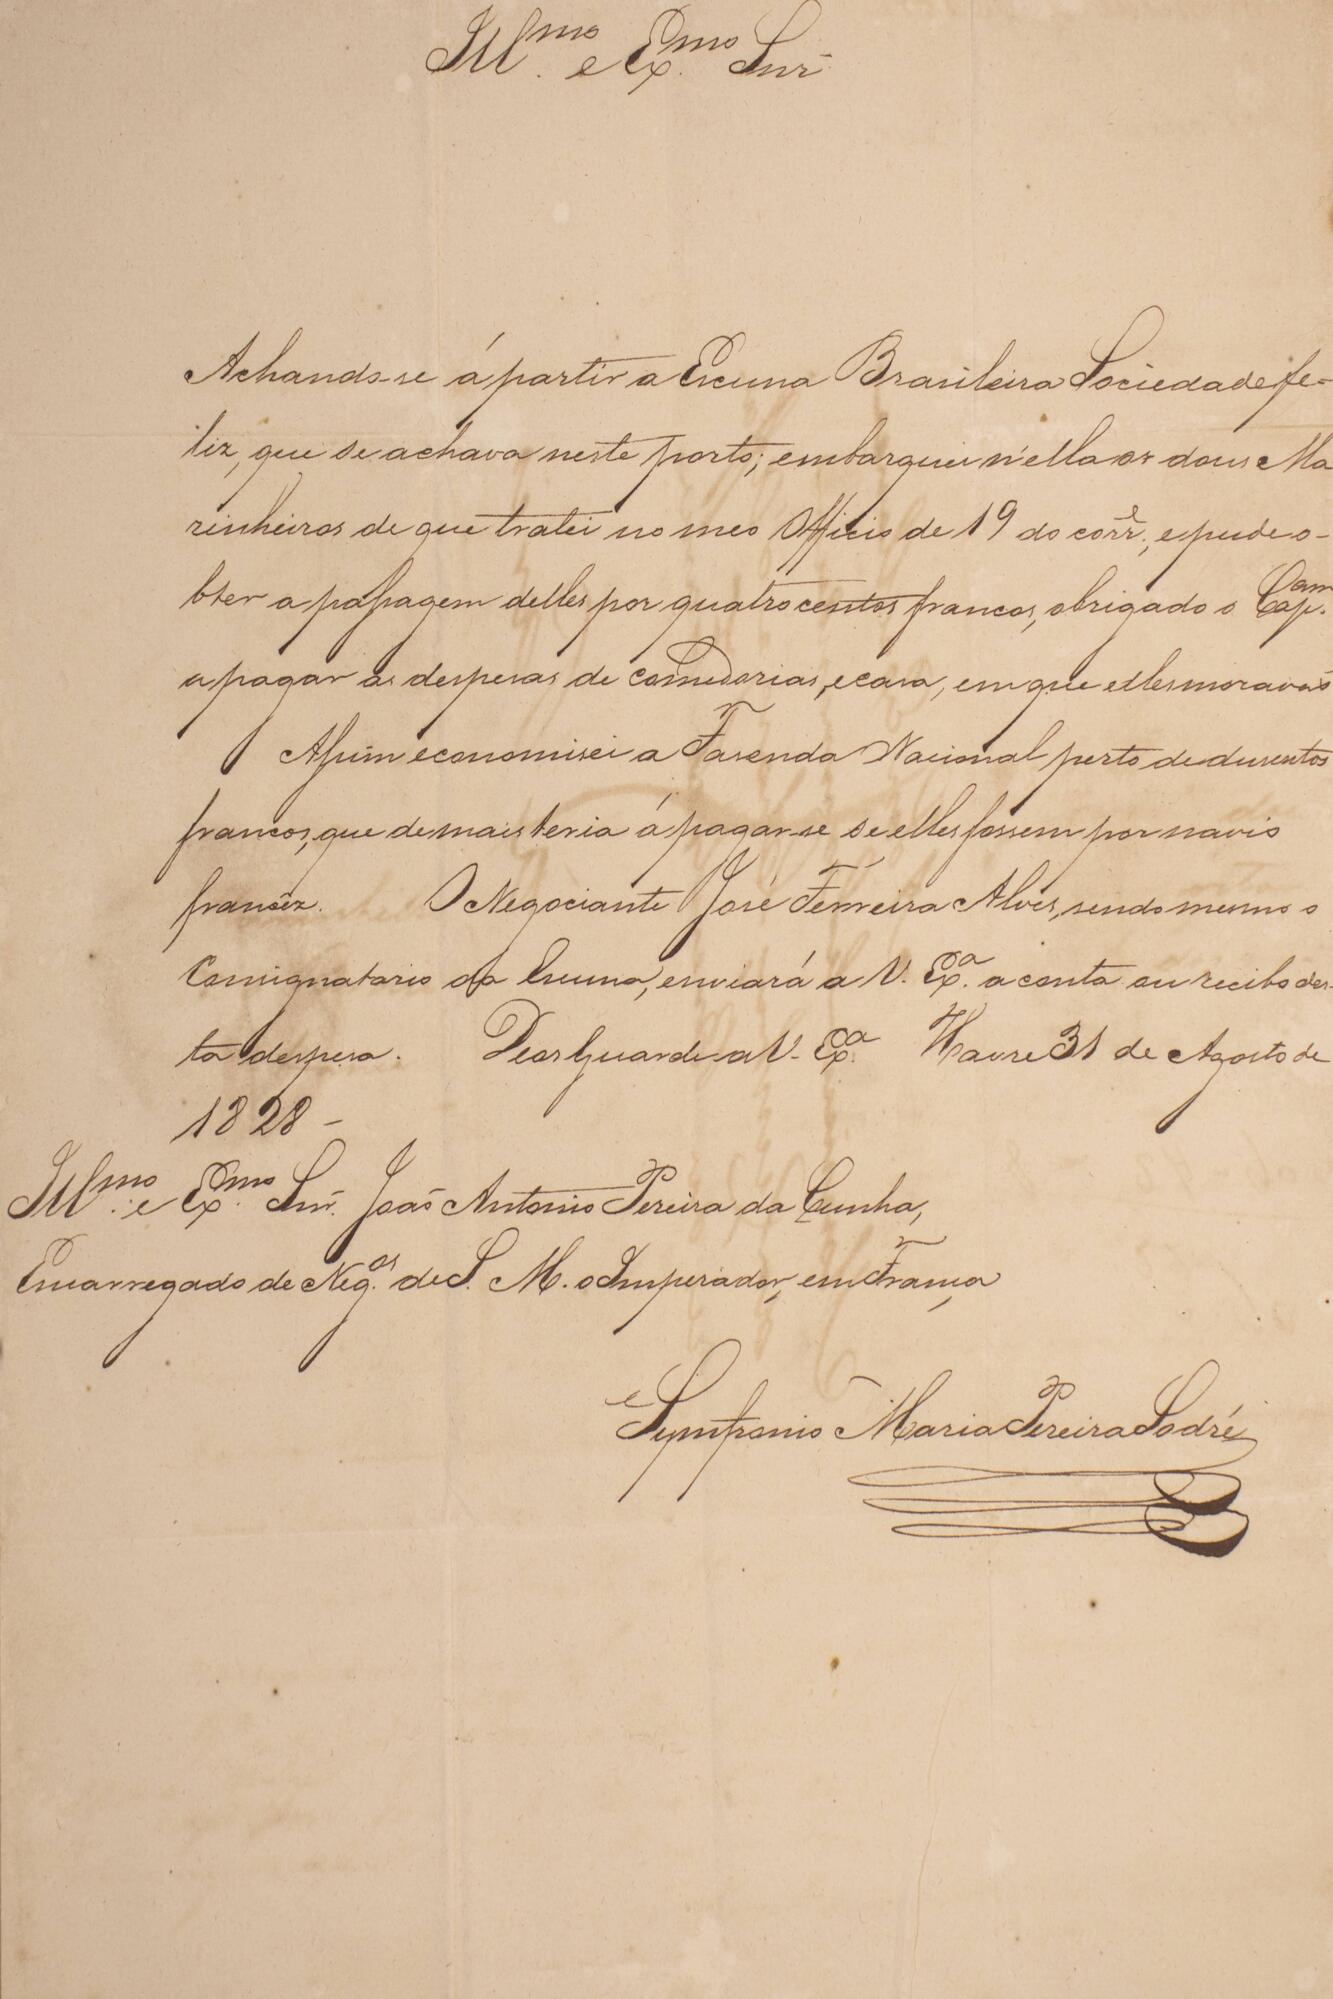 Ill.mo e Ex.mo Snr
Achando-se á partir a Escuna Brasileira Sociedade fe-
liz, que se achava neste porto; embarquei n'ella os dous Ma
rinheiros de que tratei no meo Officio de 19 do corr.e, e pude o-
bter a passagem delles por quatrocentos francos, obrigado o Cap.am
a pagar as despesas de comedorias, e casa, em que elles moravaõ
Assim economisei a Fasenda Nacional perto de dusentos
francos, que de mais teria á pagar-se se elles fossem por navio
francêz. O Negociante José Ferreira Alves, sendo mesmo o
Consignatario da Escuna, enviará a V. Ex.a a conta ou recibo des-
ta despesa. Deos Guarde a V. Ex.a Havre 31 de Agosto de
1828 -
Ill.mo e Ex.mo Snr. Joaõ Antonio Pereira da Cunha,
Encarregado de Neg.os de S. M. o Imperador, em França
Symfronio Maria Pereira Sodré